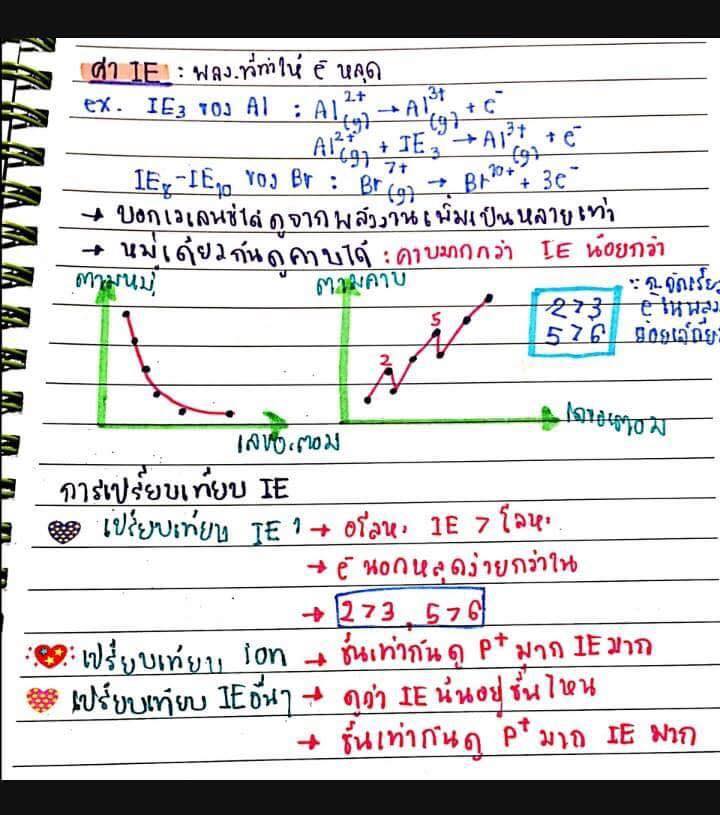 ค่า IE : พลง.ที่ทำให้ e⁻ หลุด
ex. IE₃ ของ Al : Al²⁺(g) → Al³⁺(g) + e⁻
Al²⁺(g) + IE₃ → Al³⁺(g) + e⁻
IE₈-IE₁₀ ของ Br : Br⁷⁺(g) → Br¹⁰⁺ + 3e⁻
→ บอกเวเลนซ์ได้ ดูจากพลังงานเพิ่มเป็นหลายเท่า
→ หมู่เดียวกันดูคาบได้ : คาบมากกว่า IE น้อยกว่า
ตามหมู่
ตามคาบ
2
5
2>3
5>6
e⁻ ในพลง
เลขอะตอม
เลขอะตอม
การเปรียบเทียบ IE
เปรียบเทียบ IE 1 → อโลหะ IE > โลหะ
→ e⁻ นอกหลุดง่ายกว่าใน
→ 2>3, 5>6
เปรียบเทียบ ion → ชั้นเท่ากันดู p⁺ มาก IE มาก
เปรียบเทียบ IE อื่นๆ → ดูว่า IE นั้นอยู่ชั้นไหน
→ ชั้นเท่ากันดู p⁺ มาก IE มาก